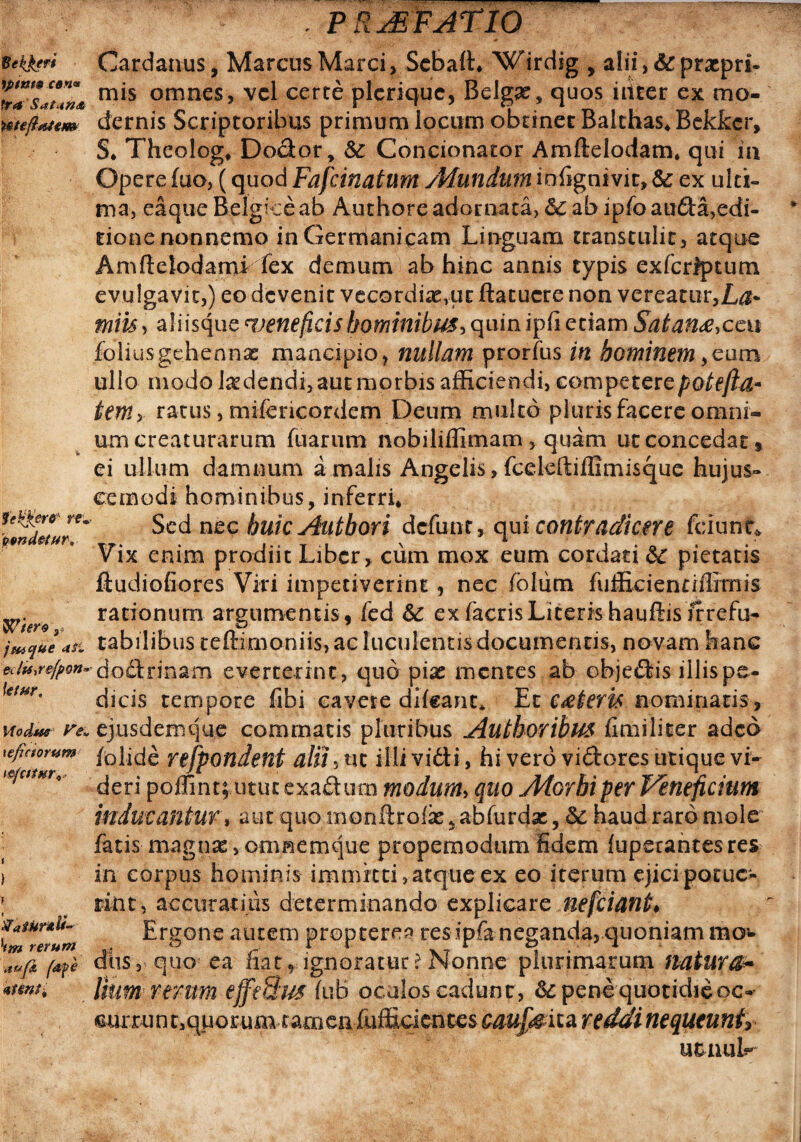 PRÆFATIO
Bekkeri
opinio con-
tra Satanæ
potestatem
Cardanus, Marcus Marci, Sebaſt. Wirdig, alii, & præpri-
mis omnes, vel certè plerique, Belgæ, quos inter ex mo-
dernis Scriptoribus primum locum obtinet Balthas. Bekker,
S. Theolog. Doctor, & Concionator Amſtelodam. qui in
Opere ſuo, (quod Faſcinatum Mundum inſignivit, & ex ulti-
ma, eâque Belgicè ab Authore adornatâ, & ab ipſo auctâ, edi-
tione nonnemo in Germanicam Linguam transtulit, atque
Amſtelodami ſex demum ab hinc annis typis exſcriptum
evulgavit,) eo devenit vecordiæ, ut ſtatuere non vereatur, La-
miis, aliisque veneficis hominibus, quin ipſi etiam Satanæ, ceu
ſolius gehennæ mancipio, nullam prorſus in hominem, eum
ullo modo lædendi, aut morbis afficiendi, competere poteſta-
tem, ratus, miſericordem Deum multò pluris facere omni-
um creaturarum ſuarum nobiliſſimam, quàm ut concedat,
ei ullum damnum à malis Angelis, ſceleſtiſſimisque hujus-
cemodi hominibus, inferri.
Bekkero re-
pondetur.
Sed nec huic Authori deſunt, qui contradicere ſciunt.
Vix enim prodiit Liber, cùm mox eum cordati & pietatis
ſtudioſiores Viri impetiverint, nec ſolùm ſufficientiſſimis
rationum argumentis, ſed & ex ſacris Literis hauſtis irrefu-
tabilibus teſtimoniis, ac luculentis documentis, novam hanc
doctrinam everterint, quò piæ mentes ab objectis illis pe-
dicis tempore ſibi cavere diſcant. Et cæteris nominatis,
ejusdemque commatis pluribus Authoribus ſimiliter adeò
ſolidè reſpondent alii, ut illi victi, hi verò victores utique vi-
deri poſſint; utut exactum modum, quo Morbi per Veneficium
inducantur, aut quo monſtroſæ, abſurdæ, & haud rarò mole
ſatis magnæ, omnemque propemodum fidem ſuperantes res
in corpus hominis immitti, atque ex eo iterum ejici potue-
rint, accuratiùs determinando explicare neſciant.
Wiero,
jusque as-
eclis, reſpon-
detur.
Modus Ve-
neficiorum
neſcitur.
Ergone autem propterea res ipſa neganda, quoniam mo-
dus, quo ea fiat, ignoratur? Nonne plurimarum natura-
lium rerum effectus ſub oculos cadunt, & penè quotidiè oc-
currunt, quorum tamen ſufficientes cauſæ ita reddi nequeunt,
Naturali-
um rerum
cauſæ ſæpè
latent.
ut nul-